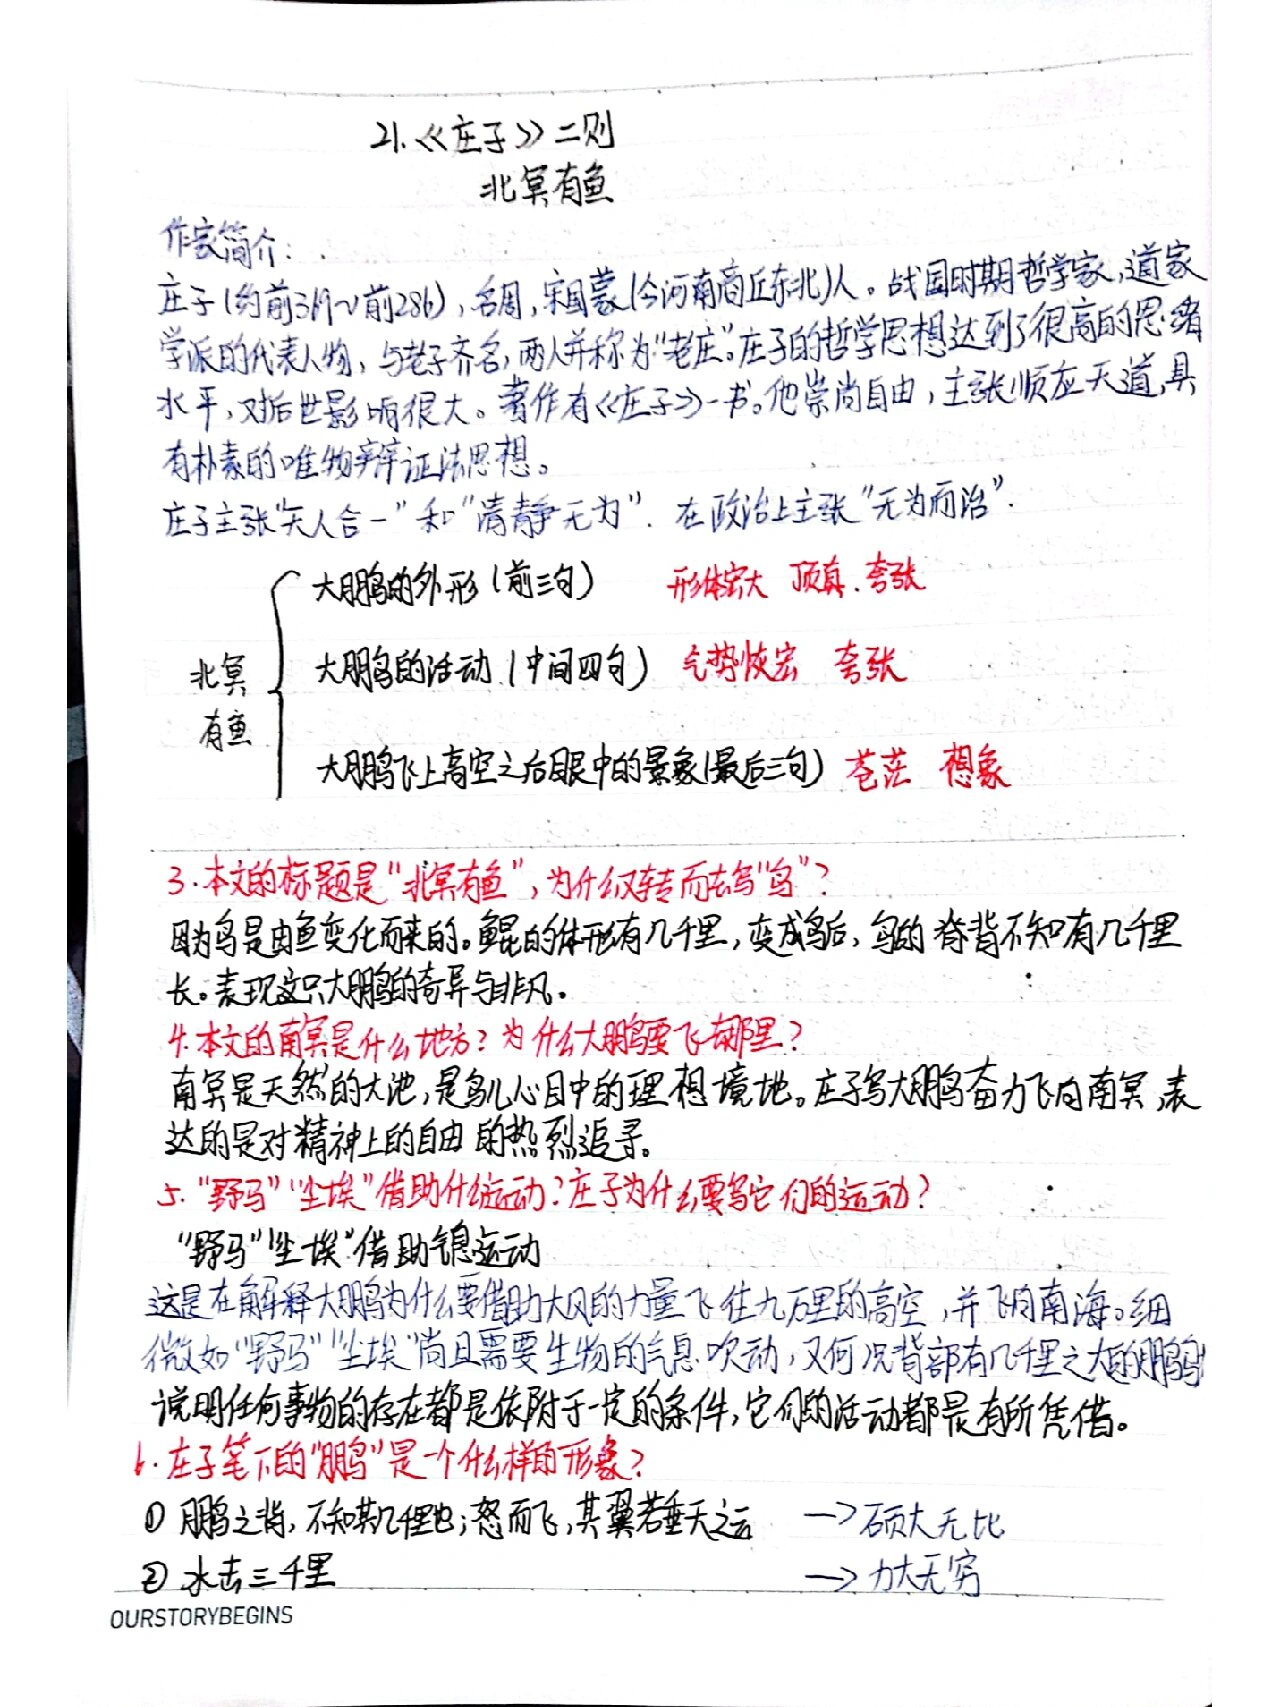 21.《庄子》二则
北冥有鱼
作家简介:
庄子(约前369~前286),名周,宋国蒙(今河南商丘东北)人。战国时期哲学家,道家
学派的代表人物,与老子齐名,两人并称为“老庄”。庄子的哲学思想达到了很高的思绪
水平,对后世影响很大。著作有《庄子》一书。他崇尚自由,主张顺应天道,具
有朴素的唯物辩证法思想。
庄子主张“天人合一”和“清静无为”.在政治上主张“无为而治”.
大鹏的外形(前三句) 形体宏大 顶真.夸张
北冥有鱼
大鹏鸟的活动(中间四句) 气势恢宏 夸张
大鹏飞上高空之后眼中的景象(最后三句) 苍茫 想象
3.本文的标题是“北冥有鱼”,为什么又转而去写“鸟”?
因为鸟是由鱼变化而来的。鲲的体形有几千里,变成鸟后,鸟的脊背不知有几千里
长。表现这只大鹏的奇异与非凡。
4.本文的南冥是什么地方?为什么大鹏要飞去那里?
南冥是天然的大池,是鸟儿心目中的理想境地。庄子写大鹏鸟奋力飞向南冥,表
达的是对精神上的自由的热烈追寻。
5.“野马”“尘埃”借助什么运动?庄子为什么要写它们的运动?
“野马”“尘埃”借助气息运动
这是在解释大鹏为什么要借助大风的力量飞往九万里的高空,并飞向南海。细
微如“野马”“尘埃”尚且需要生物的气息吹动,又何况背部有几千里之大的鹏鸟
说明任何事物的存在都是依附于一定的条件,它们的活动都是有所凭借。
6.庄子笔下的“鹏”是一个什么样的形象?
① 鹏之背,不知其几千里也;怒而飞,其翼若垂天之云 —>硕大无比
② 水击三千里 —>力大无穷
OURSTORYBEGINS